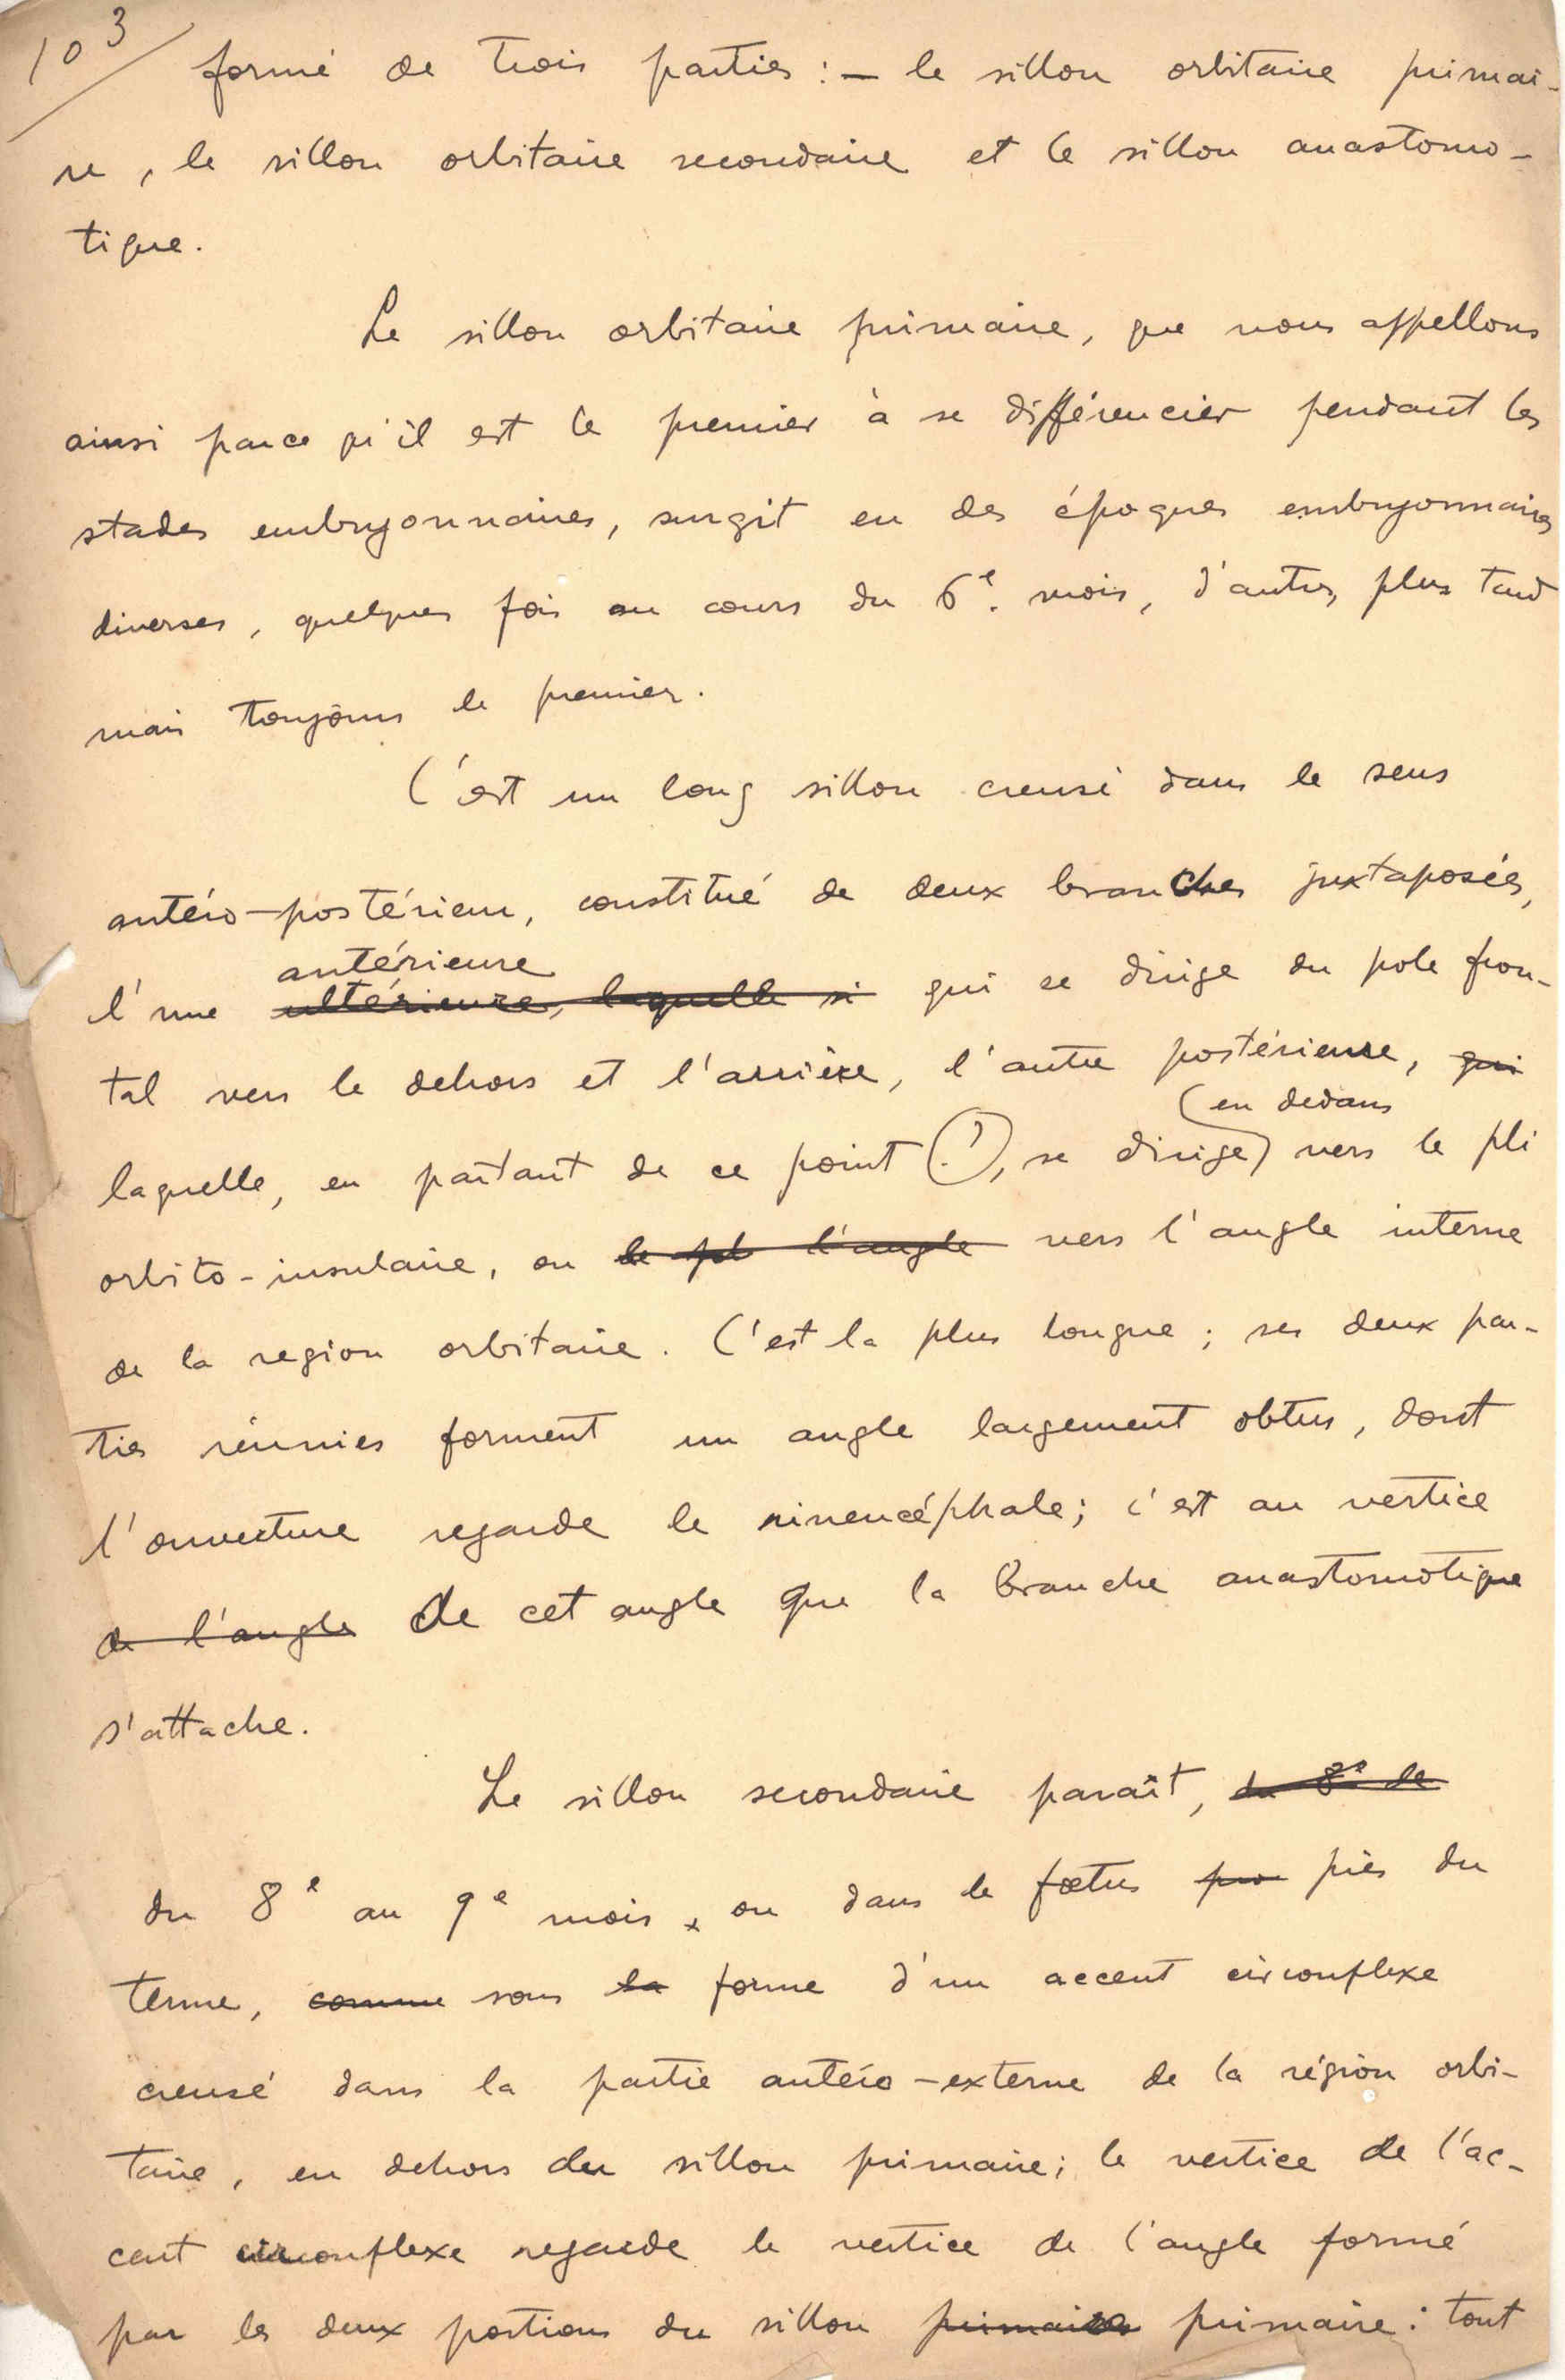 103/
formé de trois parties : — le sillon orbitaire primai-
re, le sillon orbitaire secondaire et le sillon anastomo-
tique.
Le sillon orbitaire primaire, que nous appellons
ainsi parce qu'il est le premier à se différencier pendant les
stades embryonnaires, surgit en des époques embryonnaires
diverses, quelques fois au cours du 6e. mois, d'autres, plus tard
mais toujours le premier.
C'est un long sillon creusé dans le sens
antéro-postérieur, constitué de deux branches juxtaposées,
antérieure
l'une ultérieure, laquelle si qui se dirige du pole fron-
tal vers le dehors et l'arrière, l'autre postérieure, qui
(en dedans
laquelle, en partant de ce point (!), se dirige) vers le pli
orbito-insulaire, ou le pli l'angle vers l'angle interne
de la region orbitaire. C'est la plus longue ; ses deux par-
ties réunies forment un angle largement obtus, dont
l'ouverture regarde le rinencéphale; c'est au vertice
de l'angle de cet angle que la branche anastomotique
s'attache.
Le sillon secondaire paraît, du 8e de
du 8e au 9e mois, ou dans le fœtus pro près du
terme, comme sous la forme d'un accent circonflexe
creusé dans la partie antéro-externe de la région orbi-
taire, en dehors du sillon primaire; le vertice de l'ac-
cent circonflexe regarde le vertice de l'angle formé
par les deux portions du sillon primaires primaire : tout